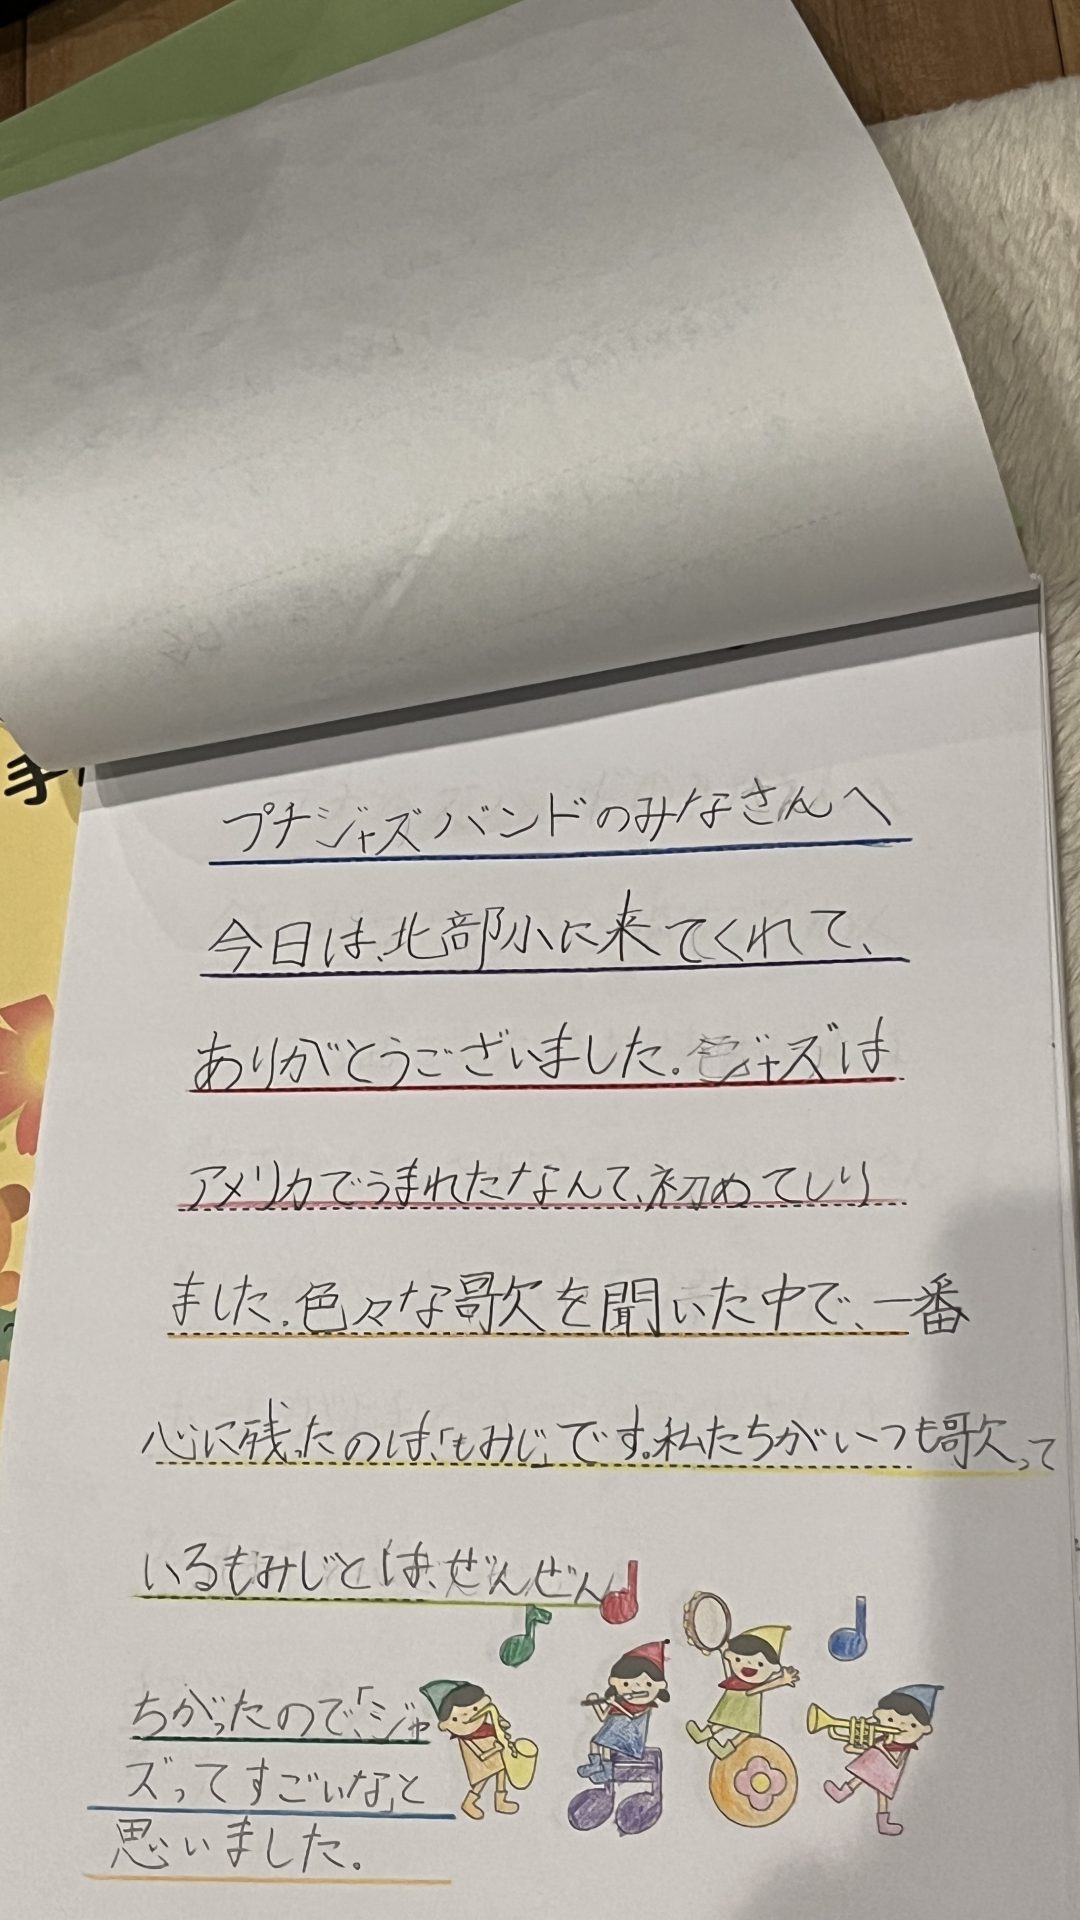 プチジャズバンドのみなさんへ
今日は、北部小に来てくれて、
ありがとうございました。ジャズは
アメリカでうまれたなんて、初めてしり
ました。色々な歌を聞いた中で、一番
心に残ったのは、「もみじ」です。私たちがいつも歌って
いるもみじとは、ぜんぜん
ちがったので、「ジャ
ズってすごいな」と
思いました。